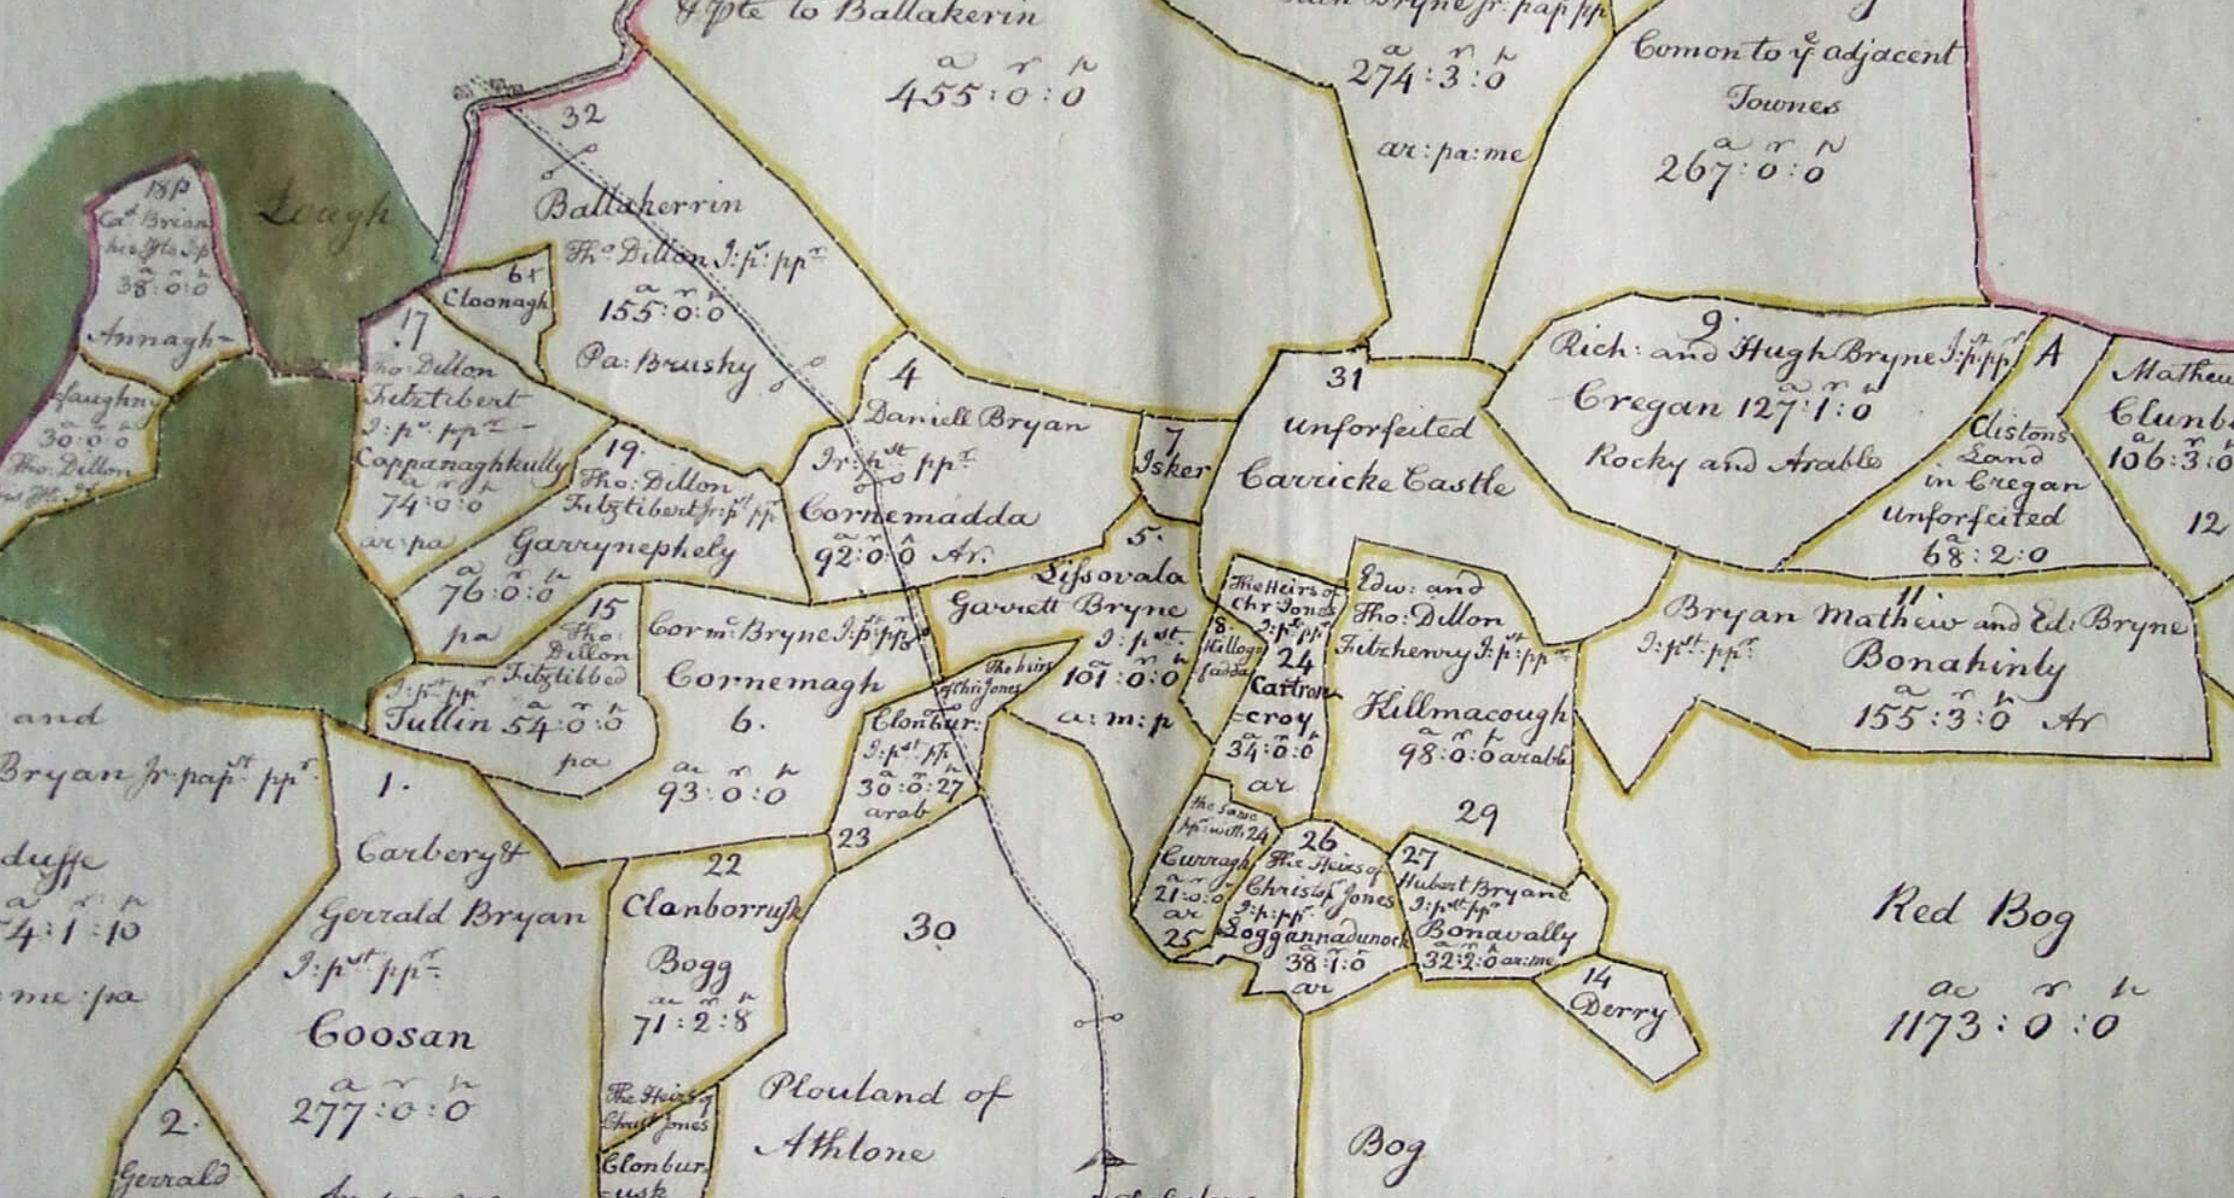 & pte to Ballakerin
a r p
455:0:0
Bryne Jr: pap pp
a r p
274:3:0
ar:pa:me
Comon to ye adjacent
Townes
a r p
267:0:0
32
Ballakerrin
Tho Dillon I:pst: ppr
a r p
155:0:0
Pa: Brushy
Lough
18p
Cat Brian
a r p
38:0:0
Annagh-
30:0:0
Tho: Dillon
6t
Cloonagh
17
Tho: Dillon
Fitztibert
I:pst: ppr
Cappanaghkully
a r p
74:0:0
ar:pa
19.
Tho: Dillon
Fitztibert Jr:pst pp
Garrynephely
a r p
76:0:0
pa
4
Daniell Bryan
Ir:pst ppr
Cornemadda
a r p
92:0:0 Ar.
7
Isker
5.
Lissovala
Garrett Bryne
I:pst
a r p
101:0:0
a:m:p
31
Unforfeited
Carricke Castle
9.
Rich: and Hugh Bryne I:pst:ppr
a r p
Cregan 127:1:0
Rocky and Arable
A
Clistons
Land
in Cregan
Unforfeited
a
68:2:0
Mathew
Clunb
a r p
106:3:0
12
11
Bryan Mathew and Ed: Bryne
I:pst:ppr:
Bonahinly
a r p
155:3:0 Ar
15
Tho:
Dillon
Fitztibbed
I:pst ppr
a r p
Tullin 54:0:0
pa
Corm: Bryne I:pst:ppr
Cornemagh
6.
a r p
93:0:0
The heirs
of Chr: Jones
Clonbur:
I:pst pp
a r p
30:0:27
arab
23
The Heirs of
Chr: Jones
I:pst ppr
24
Cartron
=croy
a r p
34:0:0
ar
8
Killog
fadda
Edw: and
Tho: Dillon
Fitzhenry I:pst:ppr
Killmacough
a r p
98:0:0 arable
29
the same
ppr: with 24
Curragh
a r p
21:0:0
ar
25
26
The Heirs of
Christop Jones
I:p:ppr
Loggannadunock
a r p
38:1:0
ar
27
Hubert Bryane
I:pst:ppr
Bonavally
a r p
32:2:0 ar:me
14
Derry
Red Bog
ac r p
1173:0:0
and
Bryan Jr: papst ppr
duffe
a r p
4:1:10
me:pa
1.
Carbery &
Gerrald Bryan
I:pst ppr
Coosan
a r p
277:0:0
2.
Gerrald
22
Clanborrusk
Bogg
ac r p
71:2:8
The Heirs of
Christ Jones
Clonbur
=usk
30
Plouland of
Athlone
Bog